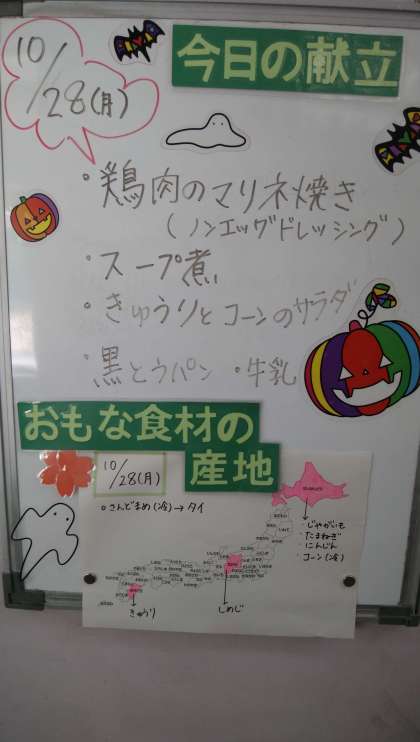 10/28(月)
今日の献立
・鶏肉のマリネ焼き
(ノンエッグドレッシング)
・スープ煮
・きゅうりとコーンのサラダ
・黒とうパン ・牛乳
おもな食材の
産地
10/28(月)
○さんどまめ(冷)→タイ
・じゃがいも
・たまねぎ
・にんじん
・コーン(冷)
きゅうり
しめじ